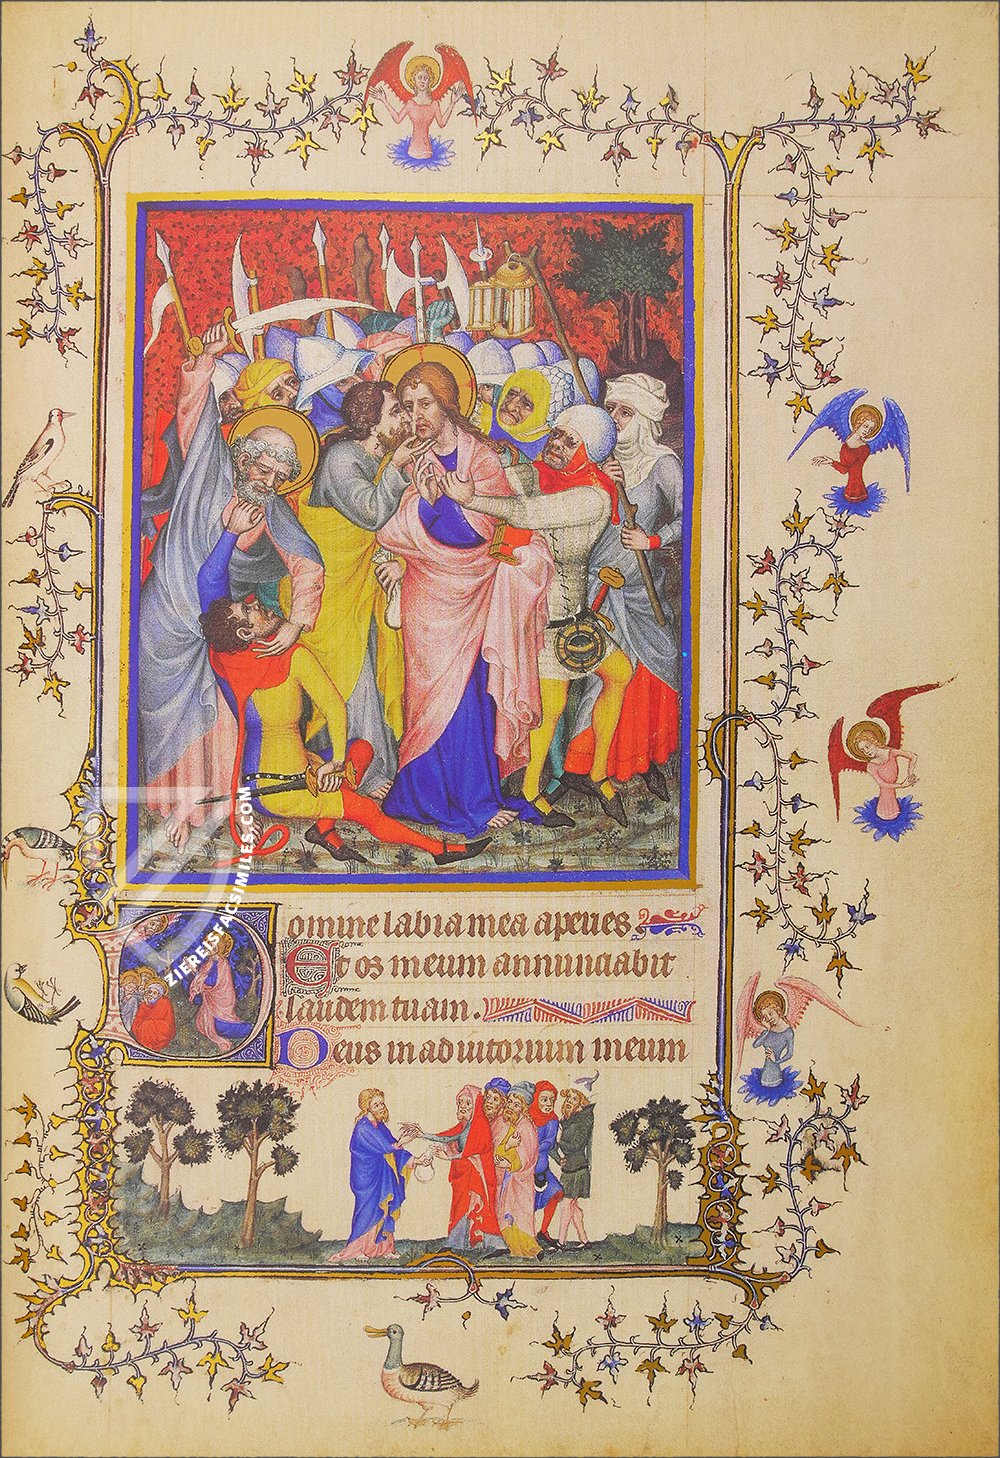 Domine labia mea aperies
Et os meum annunciabit
laudem tuam.
Deus in adiutorium meum
ZIEREISFACSIMILES.COM